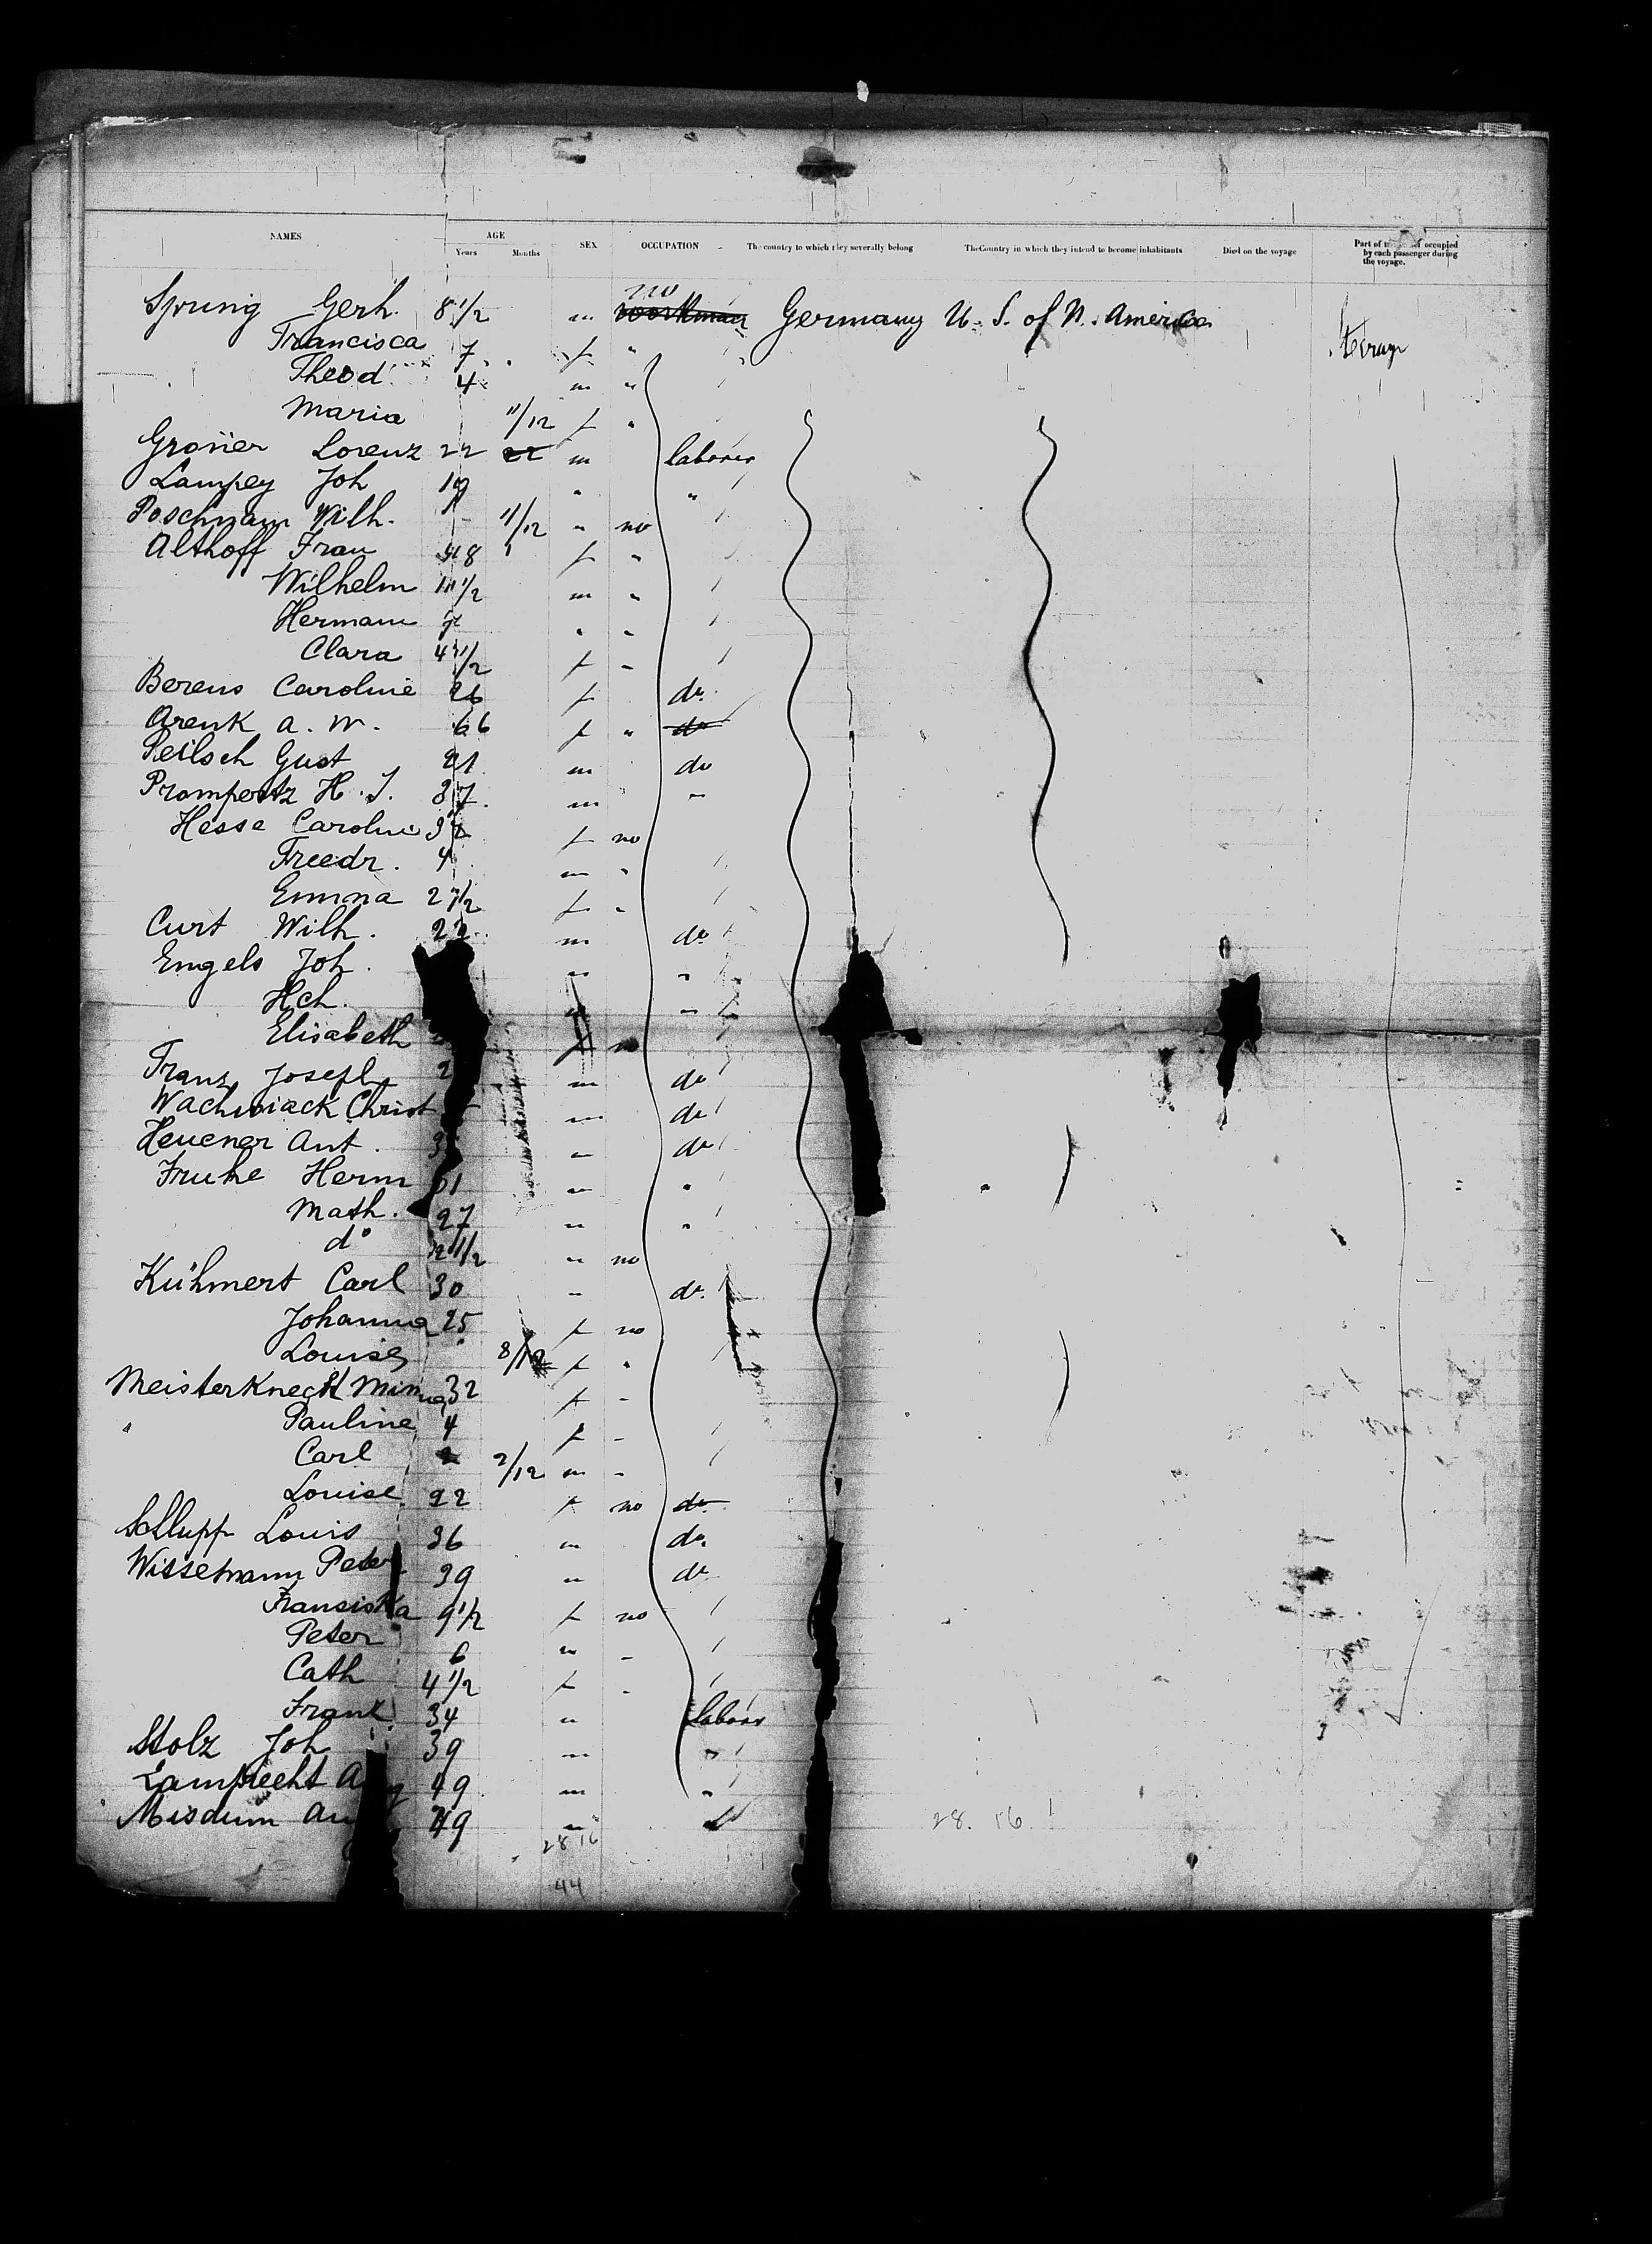 NAMES AGE Years Months SEX OCCUPATION The country to which they severally belong The Country in which they intend to become inhabitants Died on the voyage Part of occupied by each passenger during the voyage.
Sprung Gerh. 8 1/2 m no Germany U. S. of N. America
Francisca 7 f "
Theod 4 m "
Maria 11/12 f "
Lorenz 22 m laborer
Lampey Joh 19 " "
Wilh. 11/12 " no
Althoff Frau 48 f "
Wilhelm 1/2 m "
Hermann 7 " "
Clara 4 1/2 f "
Berens Caroline 26 f do.
A. W. 66 f "
Gust 21 m do
H. J. 37 m "
Hesse Caroline f no
Friedr. 4 m "
Emma 2 1/2 f "
Curt Wilh. 22 m do
Engels Joh. m "
Hch. "
Elisabeth f no
Franz Joseph 2 m do
Wachwiack Christ m do
Heuener Ant. 3 m do
Fruhe Herm 61 m "
Math. 27 " "
do 2 1/2 " no
Kühmert Carl 30 " do.
Johanna 25 f no
Louise 8/12 f "
Meisterknecht Minna 32 f "
" Pauline 4 f "
Carl 2/12 m "
Louise 22 f no
Schlupp Louis 36 m do.
Wissemann Peter 39 " do
Fransiska 9 1/2 f no
Peter 6 m "
Cath 4 1/2 f "
Franz 34 m labour
Stolz Joh 39 m "
Lamprecht 49 m "
Misdum 49 m
28 16 28. 16.
44